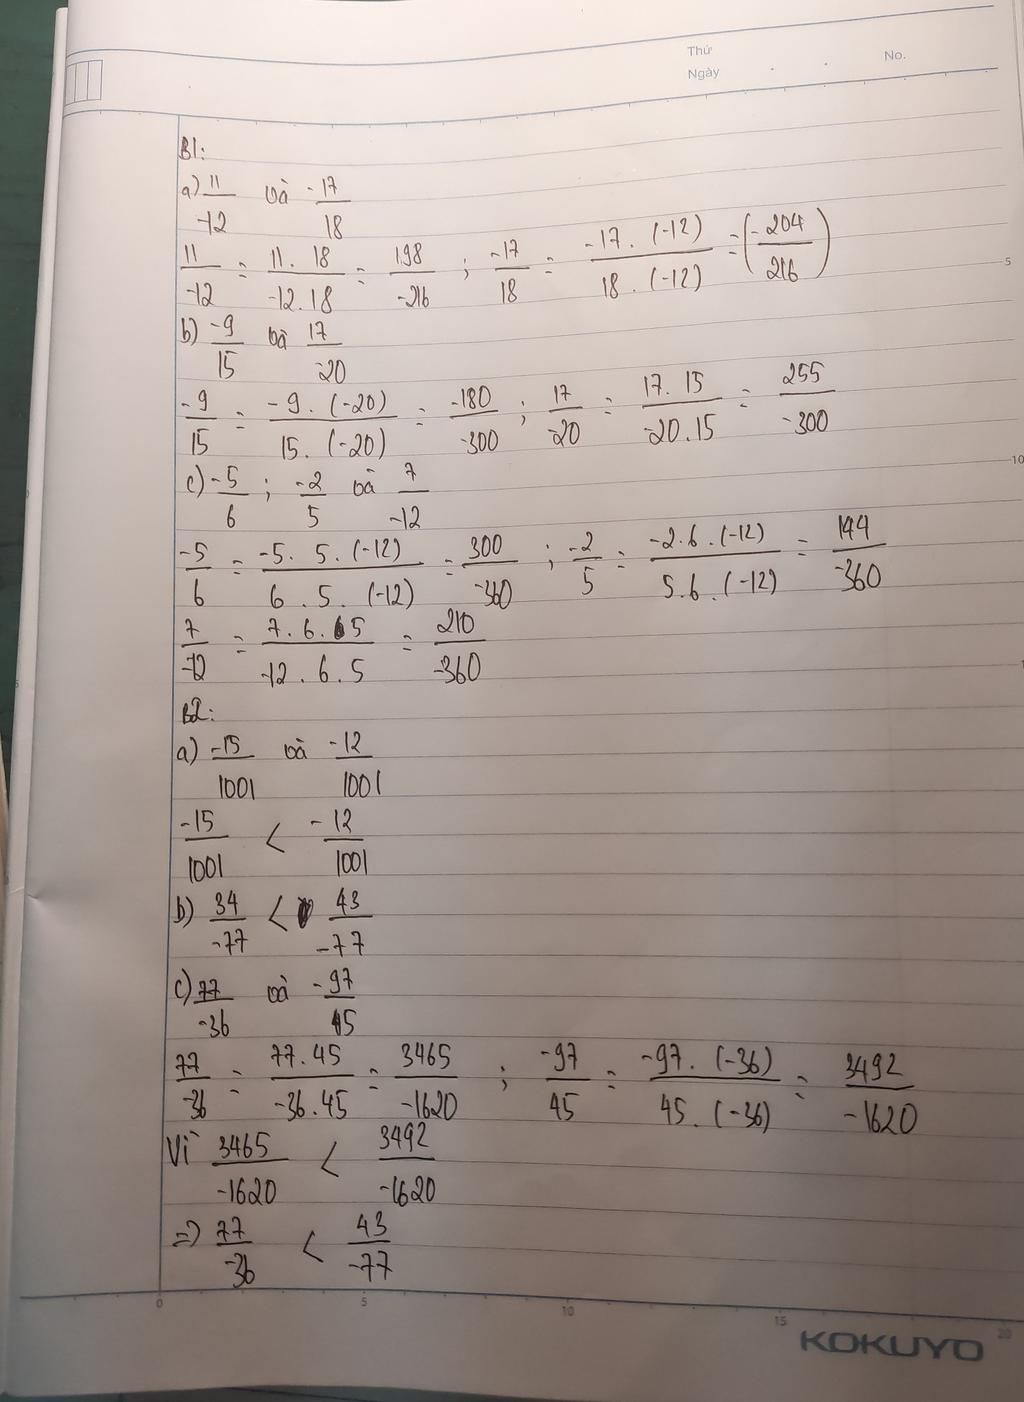 Thứ
Ngày . . No.
B1:
a) 11/-12 và -17/18
11/-12 = 11.18/-12.18 = 198/-216 ; -17/18 = -17.(-12)/18.(-12) = (-204/216)
b) -9/15 và 17/-20
-9/15 = -9.(-20)/15.(-20) = -180/-300 ; 17/-20 = 17.15/-20.15 = 255/-300
c) -5/6 ; -2/5 và 7/-12
-5/6 = -5.5.(-12)/6.5.(-12) = 300/-360 ; -2/5 = -2.6.(-12)/5.6.(-12) = 144/-360
7/-12 = 7.6.5/-12.6.5 = 210/-360
B2:
a) -15/1001 và -12/1001
-15/1001 < -12/1001
b) 34/-77 < 43/-77
c) 77/-36 và -97/45
77/-36 = 77.45/-36.45 = 3465/-1620 ; -97/45 = -97.(-36)/45.(-36) = 3492/-1620
Vì 3465/-1620 < 3492/-1620
=> 77/-36 < 43/-77
0 5 10 15 20
KOKUYO